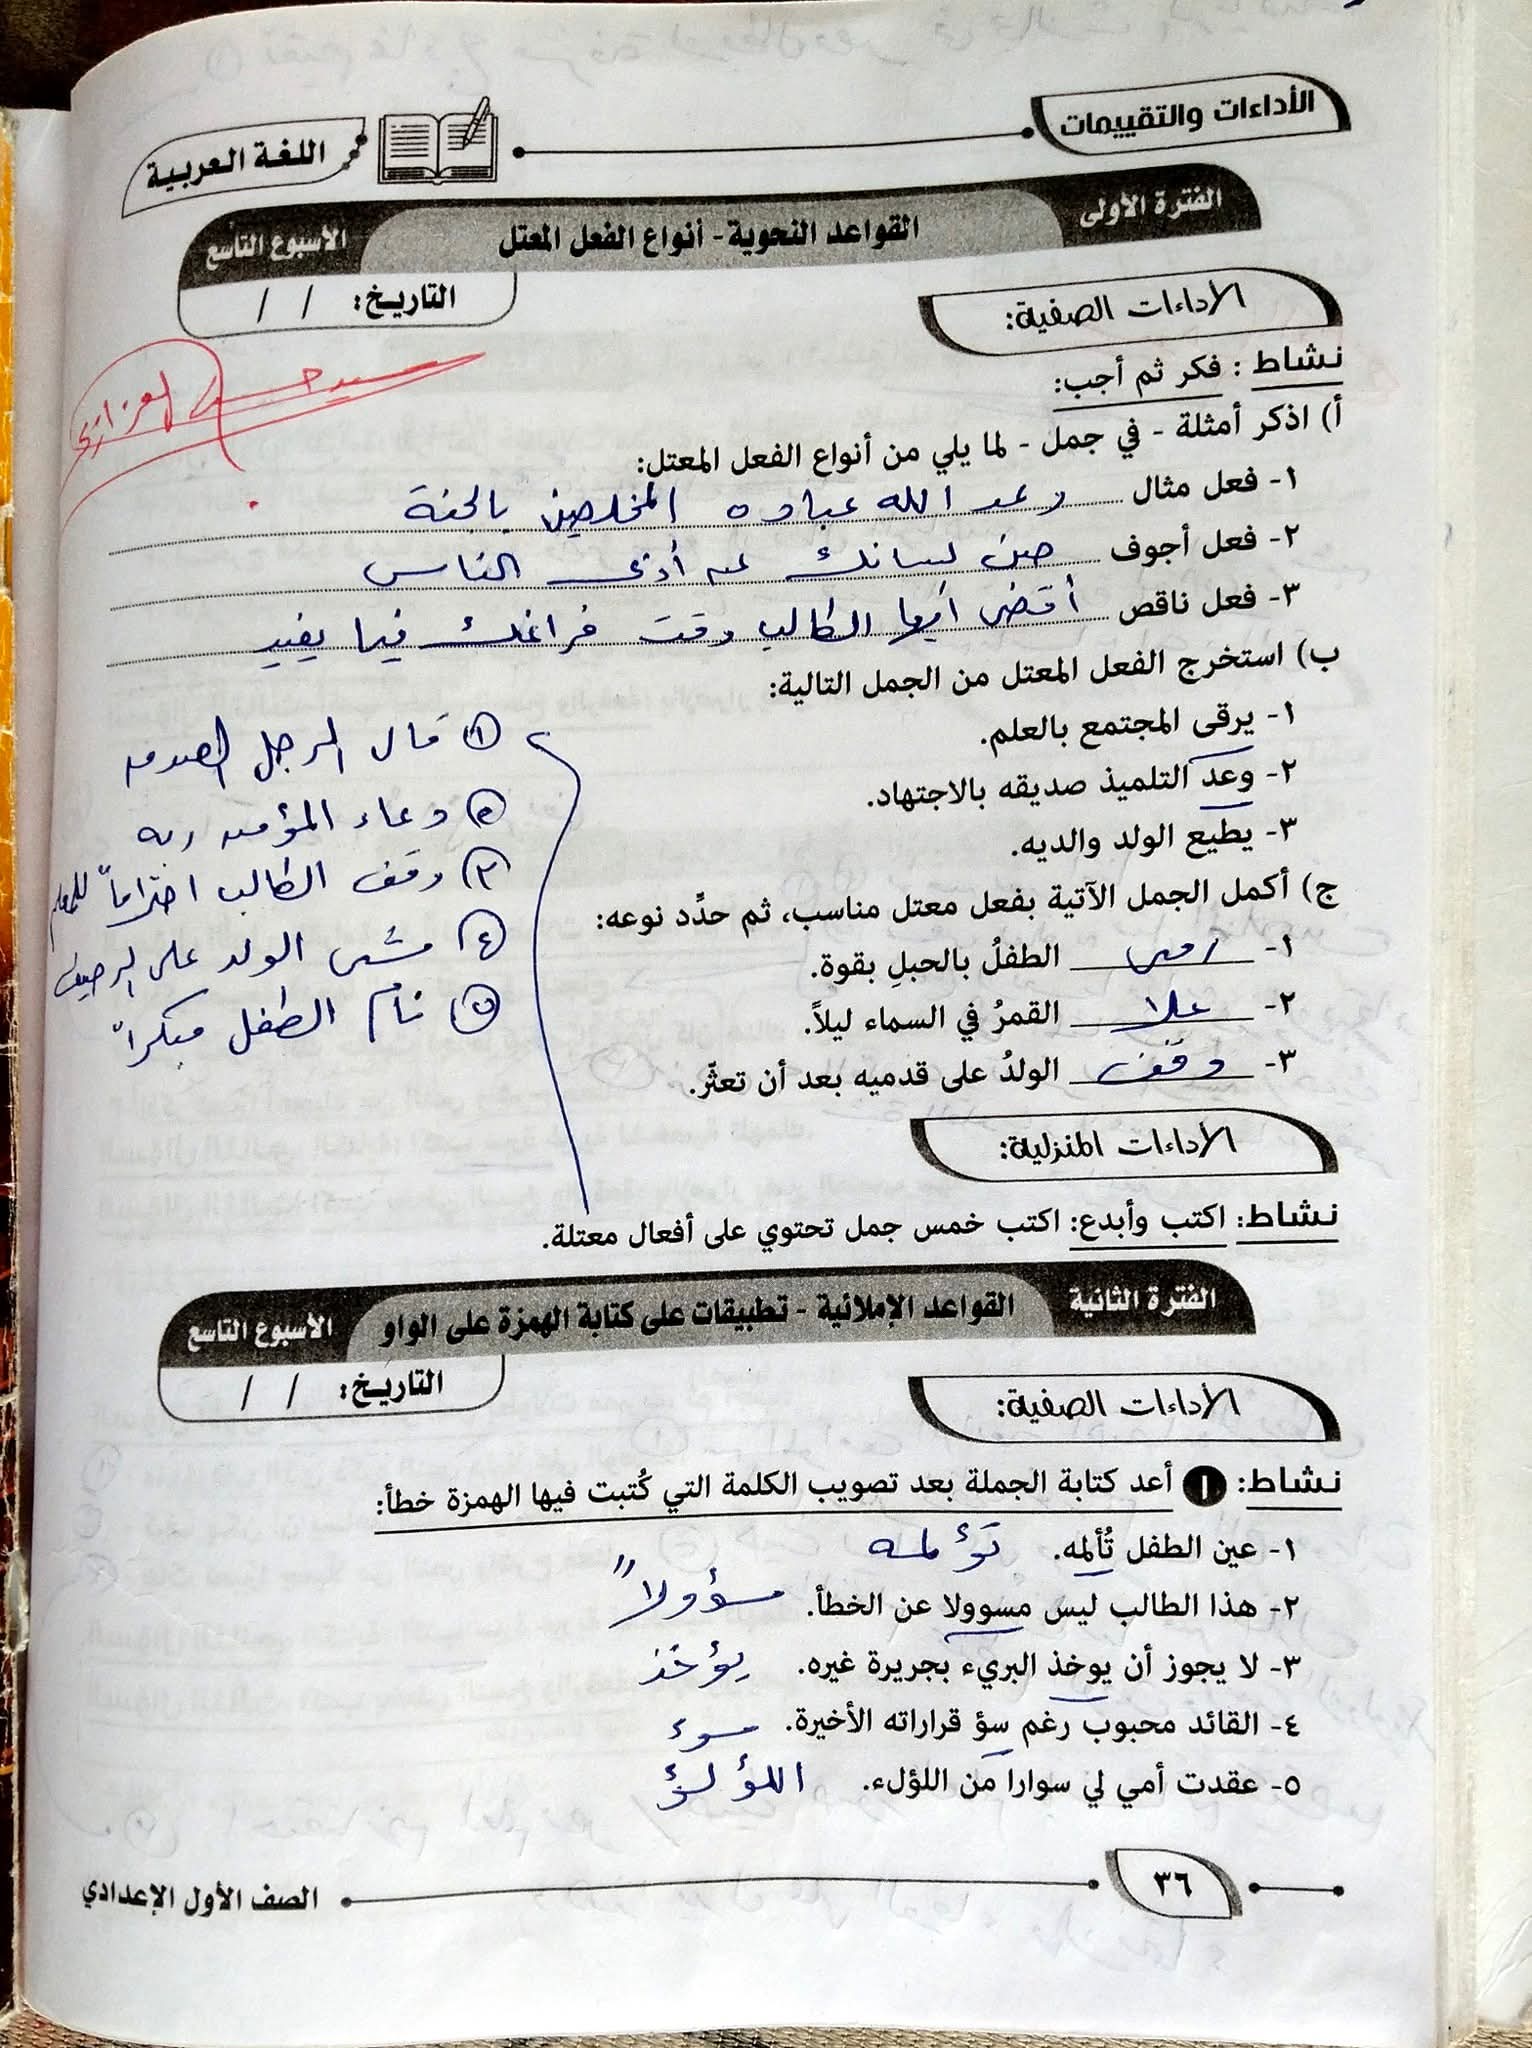 الأداءات والتقييمات
اللغة العربية
الفترة الأولى
القواعد النحوية - أنواع الفعل المعتل
الأسبوع التاسع
التاريخ: / /
الأداءات الصفية:
نشاط : فكر ثم أجب:
سيد حسن العزازي
أ) اذكر أمثلة - في جمل - لما يلي من أنواع الفعل المعتل:
١- فعل مثال وعد الله عباده المخلصين بالجنة
٢- فعل أجوف صن لسانك عن أذى الناس
٣- فعل ناقص أقضى أيها الطالب وقت فراغك فيما يفيد
ب) استخرج الفعل المعتل من الجمل التالية:
١- يرقى المجتمع بالعلم.
٢- وعد التلميذ صديقه بالاجتهاد.
٣- يطيع الولد والديه.
ج) أكمل الجمل الآتية بفعل معتل مناسب، ثم حدَّد نوعه:
١- رمى الطفلُ بالحبلِ بقوة.
٢- علا القمرُ في السماء ليلاً.
٣- وقف الولدُ على قدميه بعد أن تعثّر.
الأداءات المنزلية:
نشاط: اكتب وأبدع: اكتب خمس جمل تحتوي على أفعال معتلة.
١ قال الرجل الصدق
٢ دعاء المؤمن ربه
٣ وقف الطالب احتراماً للمعلم
٤ مشى الولد على الرصيف
٥ نام الطفل مبكراً
الفترة الثانية
القواعد الإملائية - تطبيقات على كتابة الهمزة على الواو
الأسبوع التاسع
التاريخ: / /
الأداءات الصفية:
نشاط: ١ أعد كتابة الجملة بعد تصويب الكلمة التي كُتبت فيها الهمزة خطأ:
١- عين الطفل تُألمه. تؤلمه
٢- هذا الطالب ليس مسوولا عن الخطأ. مسؤولاً
٣- لا يجوز أن يوخذ البريء بجريرة غيره. يؤخذ
٤- القائد محبوب رغم سؤ قراراته الأخيرة. سوء
٥- عقدت أمي لي سوارا من اللؤلء. اللؤلؤ
٣٦
الصف الأول الإعدادي